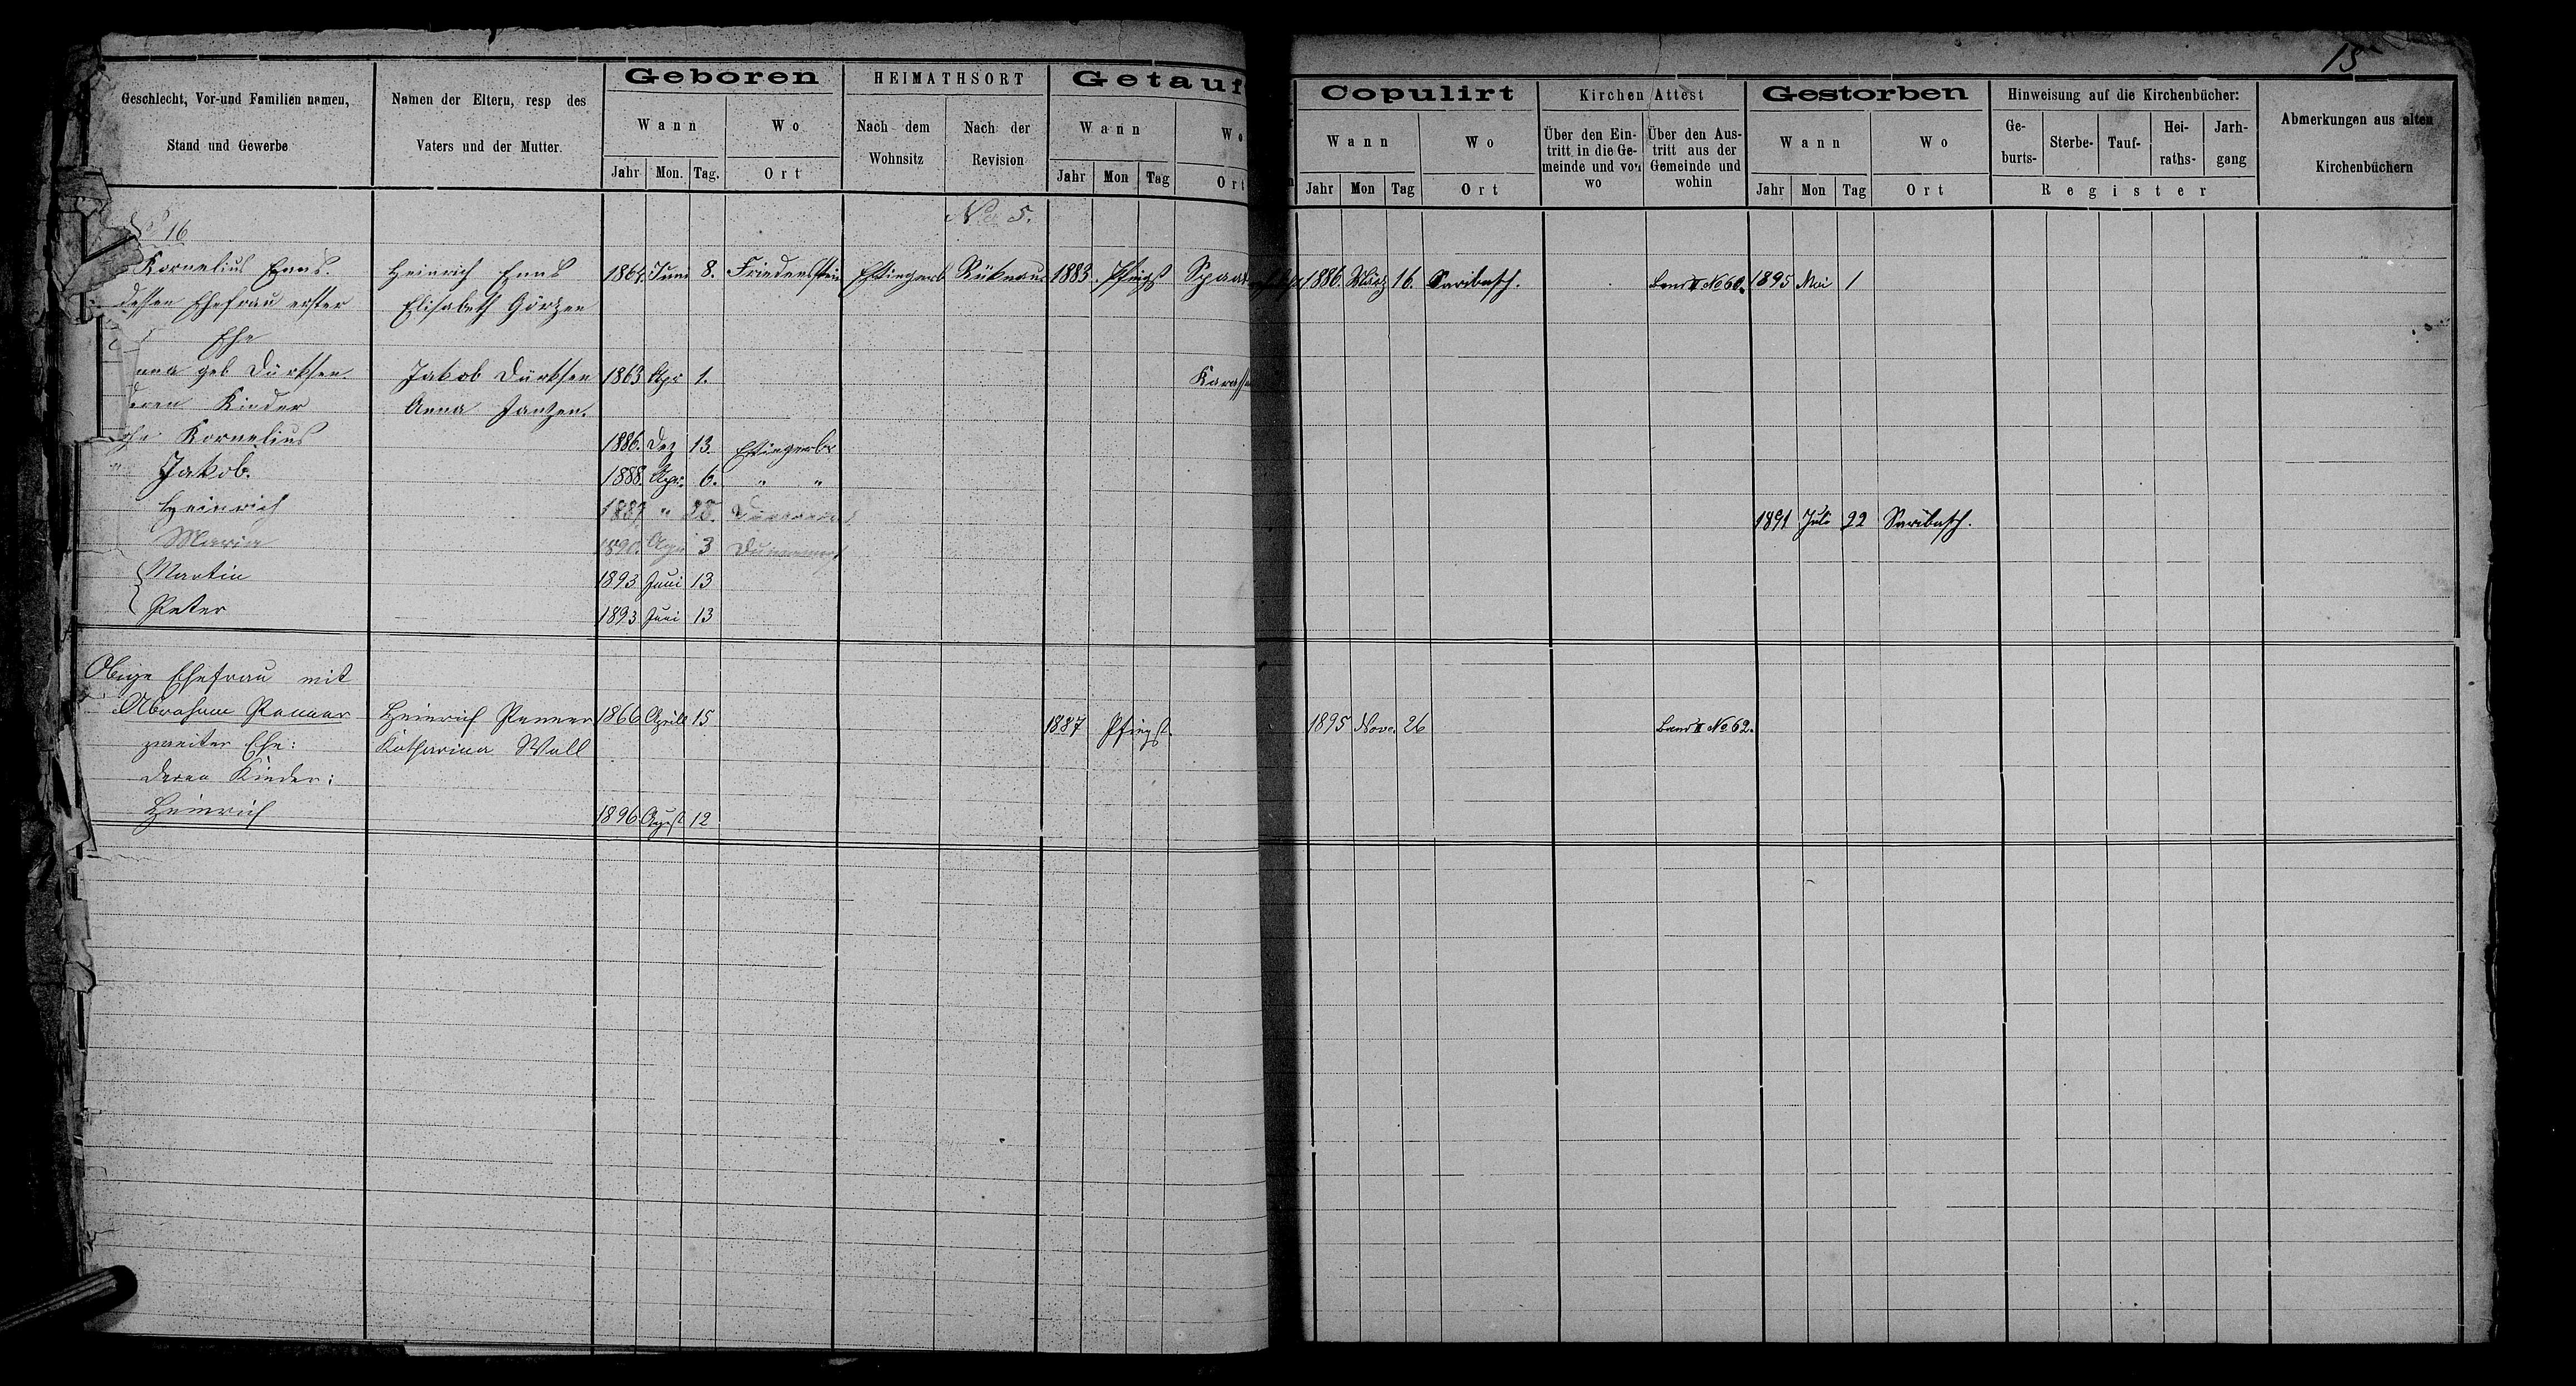 15
Geschlecht, Vor-und Familien namen,
Stand und Gewerbe
Namen der Eltern, resp des
Vaters und der Mutter.
Geboren
Wann
Wo
Jahr Mon. Tag. Ort
HEIMATHSORT
Nach dem
Wohnsitz
Nach der
Revision
Getauf
Wann
Wo
Jahr Mon Tag Ort
Copulirt
Wann
Wo
Jahr Mon Tag Ort
Kirchen Attest
Über den Ein-
tritt in die Ge-
meinde und von
wo
Über den Aus-
tritt aus der
Gemeinde und
wohin
Gestorben
Wann
Wo
Jahr Mon Tag Ort
Hinweisung auf die Kirchenbücher:
Ge-
burts-
Sterbe-
Tauf-
Hei-
raths-
Jarh-
gang
Register
Abmerkungen aus alten
Kirchenbüchern
№ 16 No 5.
Kornelius Enns. Heinrich Enns 1864. Juni 8. Friedensstein Rükenau 1883. Pfingst 1886. März 16. Saribasch. Band II No 60. 1895 Mai 1
dessen Ehefrau erster Elisabeth Görzen
Ehe
geb Dürksen. Jakob Dürksen 1863 Apr 1.
Kinder Anna Janzen.
Kornelius 1886. Dez 13.
" Jakob. 1888. Apr. 6. " "
Heinrich 1889 " 28. 1891 Juli 22 Saribasch.
Maria 1890. Apr 3
Martin 1893 Juni 13
Peter 1893 Juni 13
Obige Ehefrau mit
Abraham Penner Heinrich Penner 1866 April 15 1887 Pfingst. 1895 Nov. 26 Band II No 62.
zweiter Ehe: Katharina Wall
deren Kinder:
Heinrich 1896 August 12